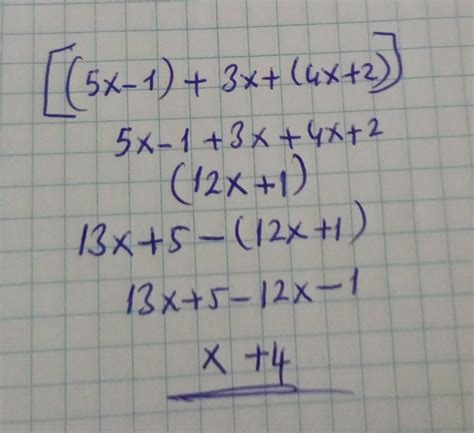 [(5x-1) + 3x + (4x+2)]
5x-1+3x+4x+2
(12x+1)
13x+5-(12x+1)
13x+5-12x-1
x +4